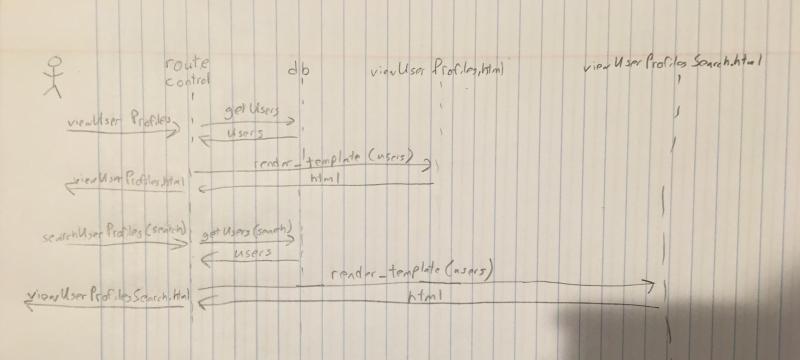 route
control
db
viewUserProfiles.html
viewUserProfilesSearch.html
viewUserProfiles
getUsers
users
render_template(users)
viewUserProfiles.html
html
searchUserProfiles(search)
getUsers(search)
users
render_template(users)
viewUserProfilesSearch.html
html